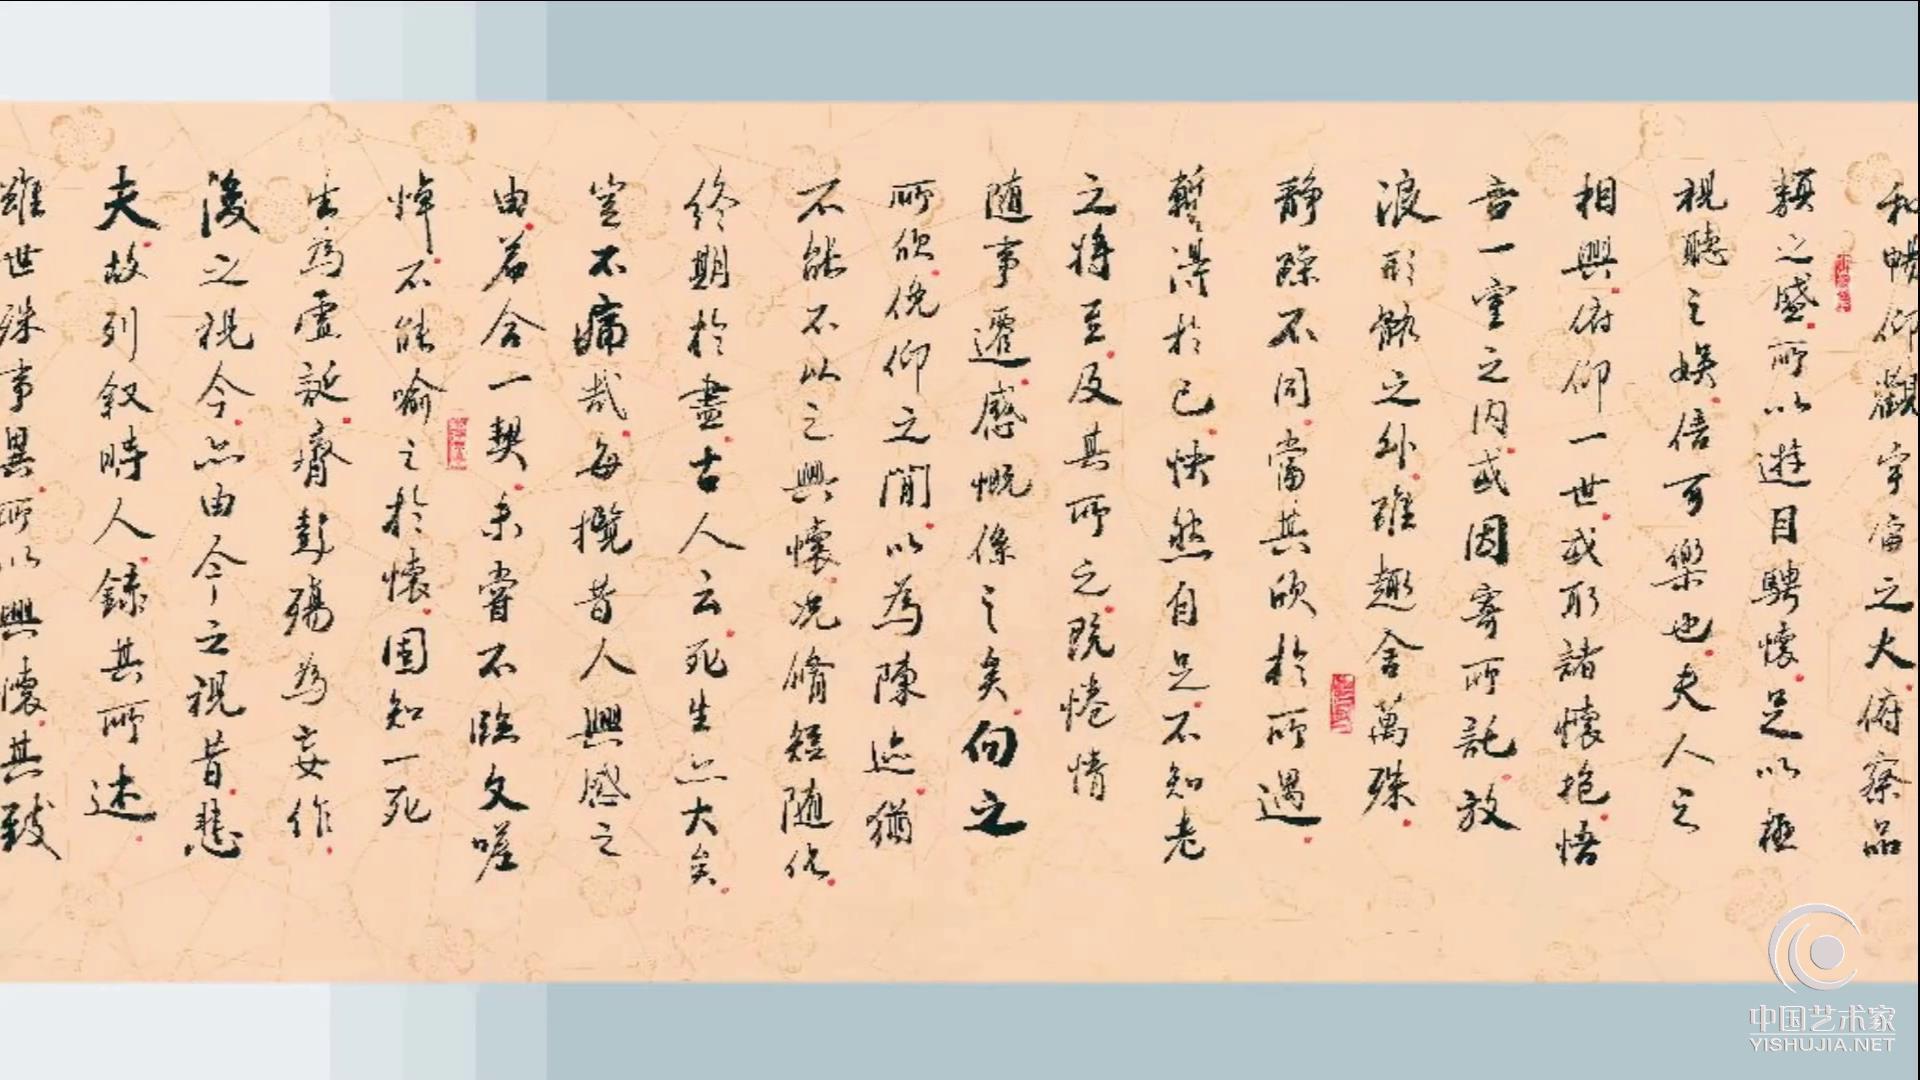 和暢仰觀宇宙之大俯察品
類之盛所以遊目騁懷足以極
視聽之娛信可樂也夫人之
相與俯仰一世或取諸懷抱悟
言一室之内或因寄所託放
浪形骸之外雖趣舍萬殊
静躁不同當其欣於所遇
暫得於己快然自足不知老
之將至及其所之既惓情
随事遷感慨係之矣向之
所欣俛仰之閒以為陳迹猶
不能不以之興懷況脩短随化
終期於盡古人云死生亦大矣
豈不痛哉每攬昔人興感之
由若合一契未嘗不臨文嗟
悼不能喻之於懷固知一死
生為虛誕齊彭殤為妄作
後之視今亦由今之視昔悲
夫故列叙時人錄其所述
雖世殊事異所以興懷其致
中国艺术家
YISHUJIA.NET